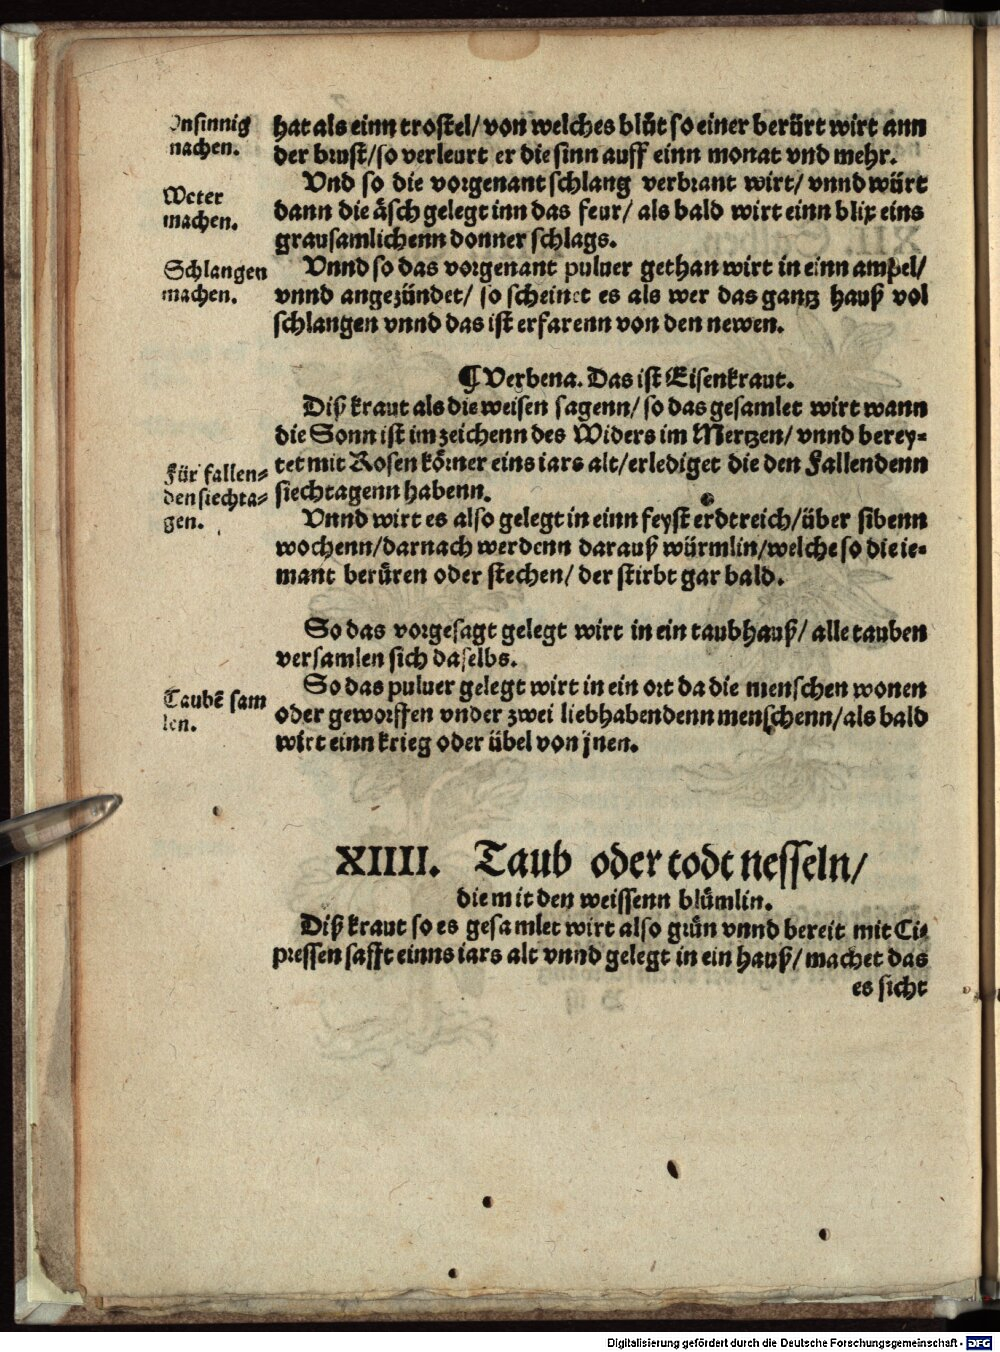 Onsinnig
machen.
hat als einn trostel/ von welches blůt so einer berürt wirt ann
der brust/ so verleurt er die sinn auff einn monat vnd mehr.
Weter
machen.
Vnd so die vorgenant schlang verbrant wirt/ vnnd würt
dann die äsch gelegt inn das feur/ als bald wirt einn blix eins
grausamlichenn donner schlags.
Schlangen
machen.
Vnnd so das vorgenant puluer gethan wirt in einn ampel/
vnnd angezündet/ so scheinet es als wer das gantz hauß vol
schlangen vnnd das ist erfarenn von den newen.
¶ Verbena. Das ist Eisenkraut.
Diß kraut als die weisen sagenn/ so das gesamlet wirt wann
die Sonn ist im zeichenn des Widers im Mertzen/ vnnd berey-
Für fallen-
den siechta-
gen.
tet mit Rosen körner eins iars alt/ erlediget die den Fallendenn
siechtagenn habenn.
Vnnd wirt es also gelegt in einn feyst erdtreich/ über sibenn
wochenn/ darnach werdenn darauß würmlin/ welche so die ie-
mant berüren oder stechen/ der stirbt gar bald.
So das vorgesagt gelegt wirt in ein taubhauß/ alle tauben
versamlen sich daselbs.
Taubē sam
len.
So das puluer gelegt wirt in ein ort da die menschen wonen
oder geworffen vnder zwei liebhabendenn menschenn/ als bald
wirt einn krieg oder übel von jnen.
XIIII. Taub oder todt nesseln/
die mit den weissenn blümlin.
Diß kraut so es gesamlet wirt also grün vnnd bereit mit Ci-
pressen safft einns iars alt vnnd gelegt in ein hauß/ machet das
es sicht
Digitalisierung gefördert durch die Deutsche Forschungsgemeinschaft - DFG